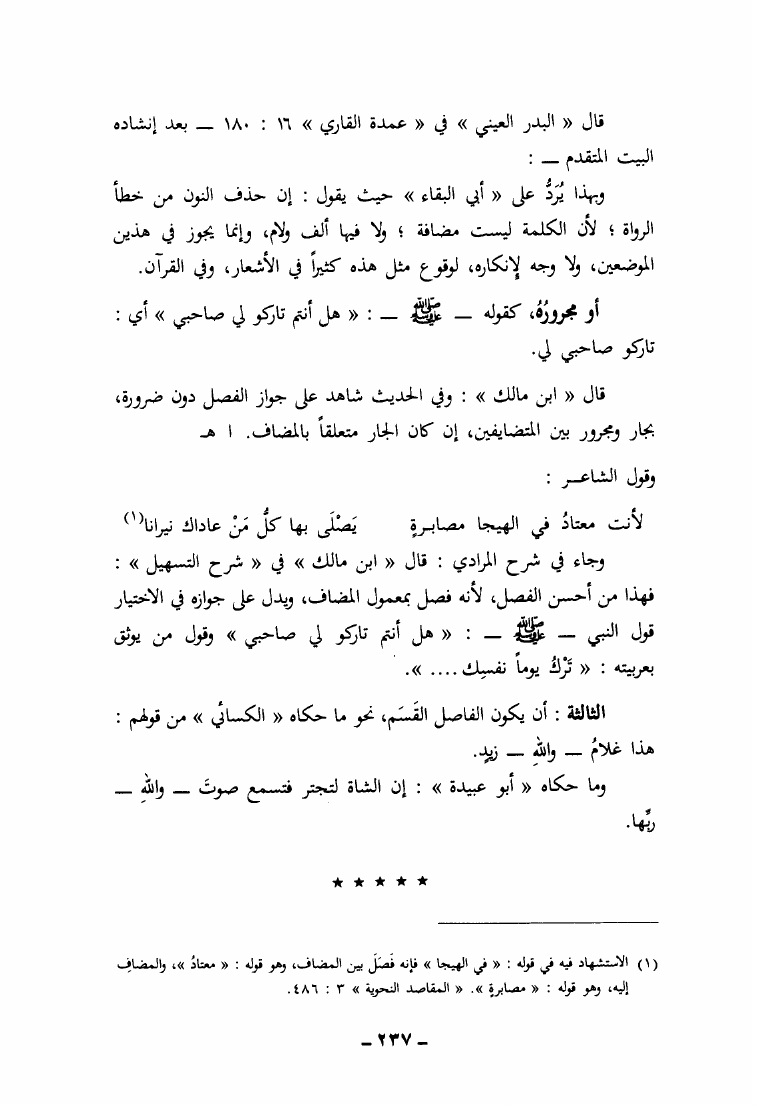 قال « البدر العيني » في « عمدة القاري » ١٦ : ١٨٠ — بعد إنشاده
البيت المتقدم — :
وبهذا يُرَدُّ على « أبي البقاء » حيث يقول : إن حذف النون من خطأ
الرواة ؛ لأن الكلمة ليست مضافة ؛ ولا فيها ألف ولام، وإنما يجوز في هذين
الموضعين، ولا وجه لإنكاره، لوقوع مثل هذه كثيراً في الأشعار، وفي القرآن.
أو مجرورُهُ، كقوله — ﷺ — : « هل أنتم تاركو لي صاحبي » أي :
تاركو صاحبي لي.
قال « ابن مالك » : وفي الحديث شاهد على جواز الفصل دون ضرورة،
بجار ومجرور بين المتضايفين، إن كان الجار متعلقاً بالمضاف. ا هـ
وقول الشاعـر :
لأنت معتادُ في الهيجا مصابـرةٍ يَصْلَى بها كلُّ مَنْ عاداك نيرانا(١)
وجاء في شرح المرادي : قال « ابن مالك » في « شرح التسهيل » :
فهذا من أحسن الفصل، لأنه فصل بمعمول المضاف، ويدل على جوازه في الاختيار
قول النبي — ﷺ — : « هل أنتم تاركو لي صاحبي » وقول من يوثق
بعربيته : « تَرْكُ يوماً نفسِك .... ».
الثالثة : أن يكون الفاصل القَسَم، نحو ما حكاه « الكسائي » من قولهم :
هذا غلامُ — واللهِ — زيدٍ.
وما حكاه « أبو عبيدة » : إن الشاة لتجتر فتسمع صوتَ — واللهِ —
ربِّها.
★ ★ ★ ★ ★
(١) الاستشهاد فيه في قوله : « في الهيجا » فإنه فَصَلَ بين المضاف، وهو قوله : « معتادُ »، والمضافِ
إليه، وهو قوله : « مصابرةٍ ». « المقاصد النحوية » ٣ : ٤٨٦.
– ٢٣٧ –